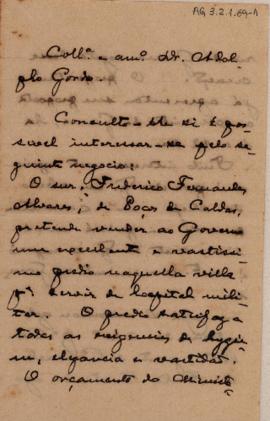 AG 3.2.1.69-A
Coll.ª e am.º Dr. Adol-
pho Gordo.
Consulto-lhe si é pos-
sivel interessar-se pelo se-
guinte negocio:
O snr. Frederico Fernandes
Alvares, de Poços de Caldas,
pretende vender ao Governo
um excellente e vastissi-
mo predio naquella villa
p.ª servir de hospital mili-
tar. O predio satisfaz a
todas as exigencias de hygie-
ne, elegancia e vastidão.
O orçamento do Minist